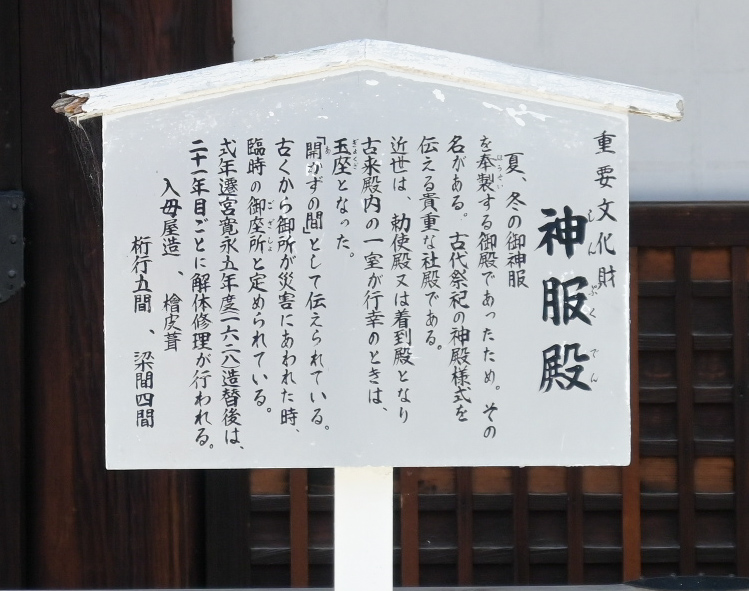 重要文化財
神服殿
しんぷくでん
夏、冬の御神服
を奉製する御殿であったため。その
ほうせい
名がある。古代祭祀の神殿様式を
伝える貴重な社殿である。
近世は、勅使殿又は着到殿となり
古来殿内の一室が行幸のときは、
玉座となった。
ぎょくざ
「開かずの間」として伝えられている。
あ
古くから御所が災害にあわれた時、
臨時の御座所と定められている。
ござしょ
式年遷宮寛永五年度(一六二八)造替後は、
二十一年目ごとに解体修理が行われる。
入母屋造、檜皮葺
桁行五間、梁間四間